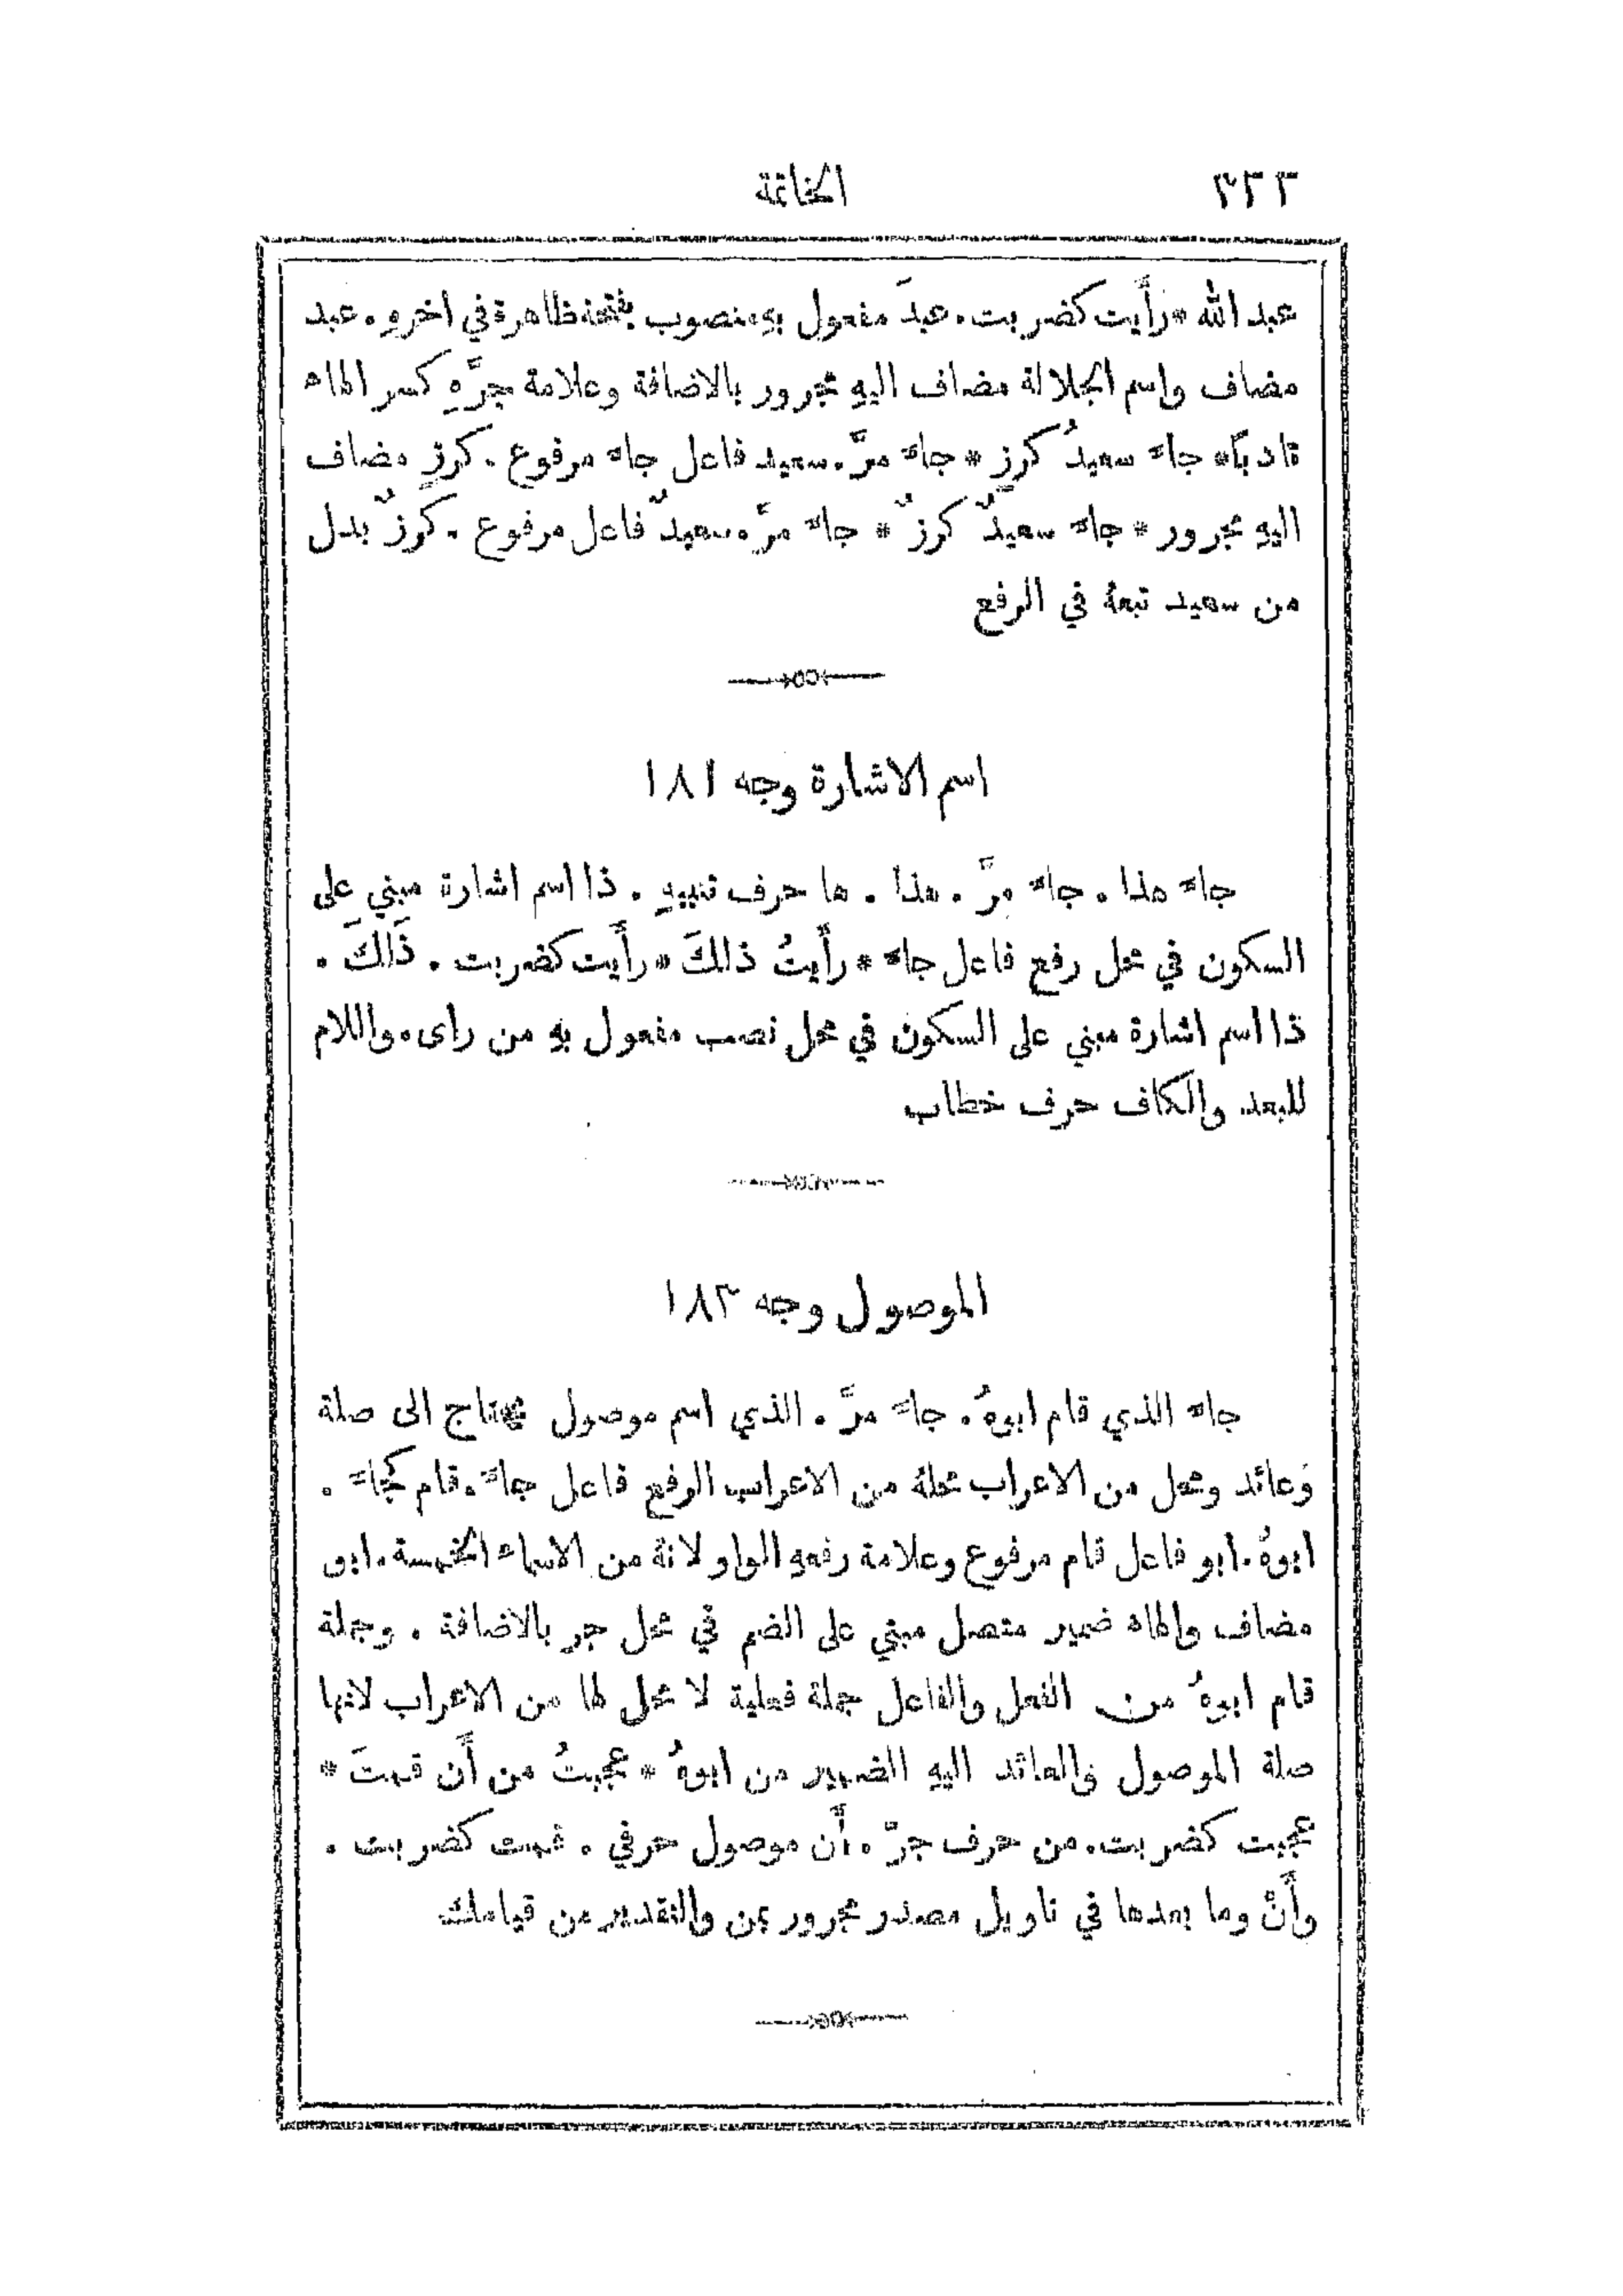 ٣٢٣ الخاتمة
عبد الله * رأَيت كضربت. عبدَ مفعول بهِ منصوب بفتحة ظاهرة في اخرهِ. عبد
مضاف واسم الجلالة مضاف اليهِ مجرور بالاضافة وعلامة جرَّهِ كسر الهاء
تادبًا * جاءَ سعيدُ كرزٍ * جاءَ مرَّ. سعيد فاعل جاءَ مرفوع. كرزٍ مضاف
اليهِ مجرور * جاءَ سعيدٌ كرزٌ * جاءَ مرَّ. سعيدٌ فاعل مرفوع. كرزٌ بدل
من سعيد تبعهُ في الرفع
اسم الاشارة وجه ١٨١
جاءَ هذا. جاءَ مرَّ. هذا. ها حرف تنبيهٍ. ذا اسم اشارة مبني على
السكون في محل رفع فاعل جاءَ * رأَيتُ ذلكَ * رأَيت كضربت. ذَلكَ.
ذا اسم اشارة مبني على السكون في محل نصب مفعول بهِ من راى. واللام
للبعد والكاف حرف خطاب
الموصول وجه ١٨٢
جاءَ الذي قام ابوهُ. جاءَ مرَّ. الذي اسم موصول محتاج الى صلة
وعائد ومحل من الاعراب محلهُ من الاعراب الرفع فاعل جاءَ. قام كجاءَ.
ابوهُ. ابو فاعل قام مرفوع وعلامة رفعهِ الواو لانهُ من الاسماء الخمسة. ابو
مضاف والهاء ضمير متصل مبني على الضم في محل جر بالاضافة. وجملة
قام ابوهُ من الفعل والفاعل جملة فعلية لا محل لها من الاعراب لانها
صلة الموصول والعائد اليهِ الضمير من ابوهُ * عجبتُ من أَن قمتَ *
عجبت كضربت. من حرف جرّ. أَن موصول حرفي. قمت كضربت.
وأَنْ وما بعدها في تاويل مصدر مجرور بمن والتقدير من قيامك